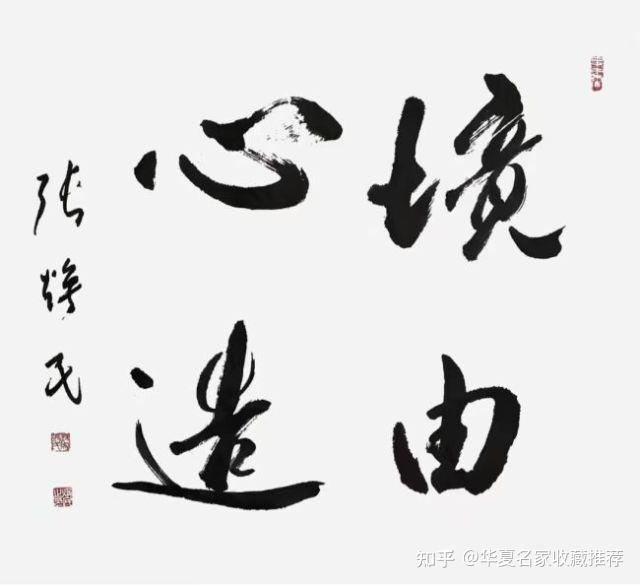 境由
心造
张民
知乎 @华夏名家收藏推荐